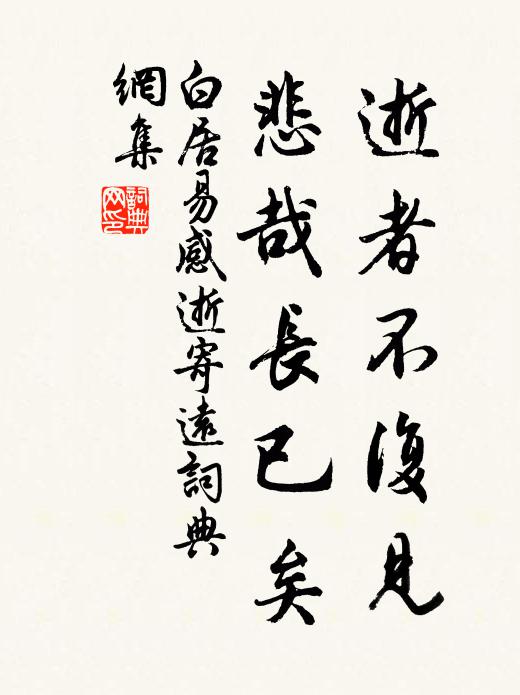 逝者不復見
悲哉長已矣
白居易感逝寄遠詞典
網集
詞典
网印